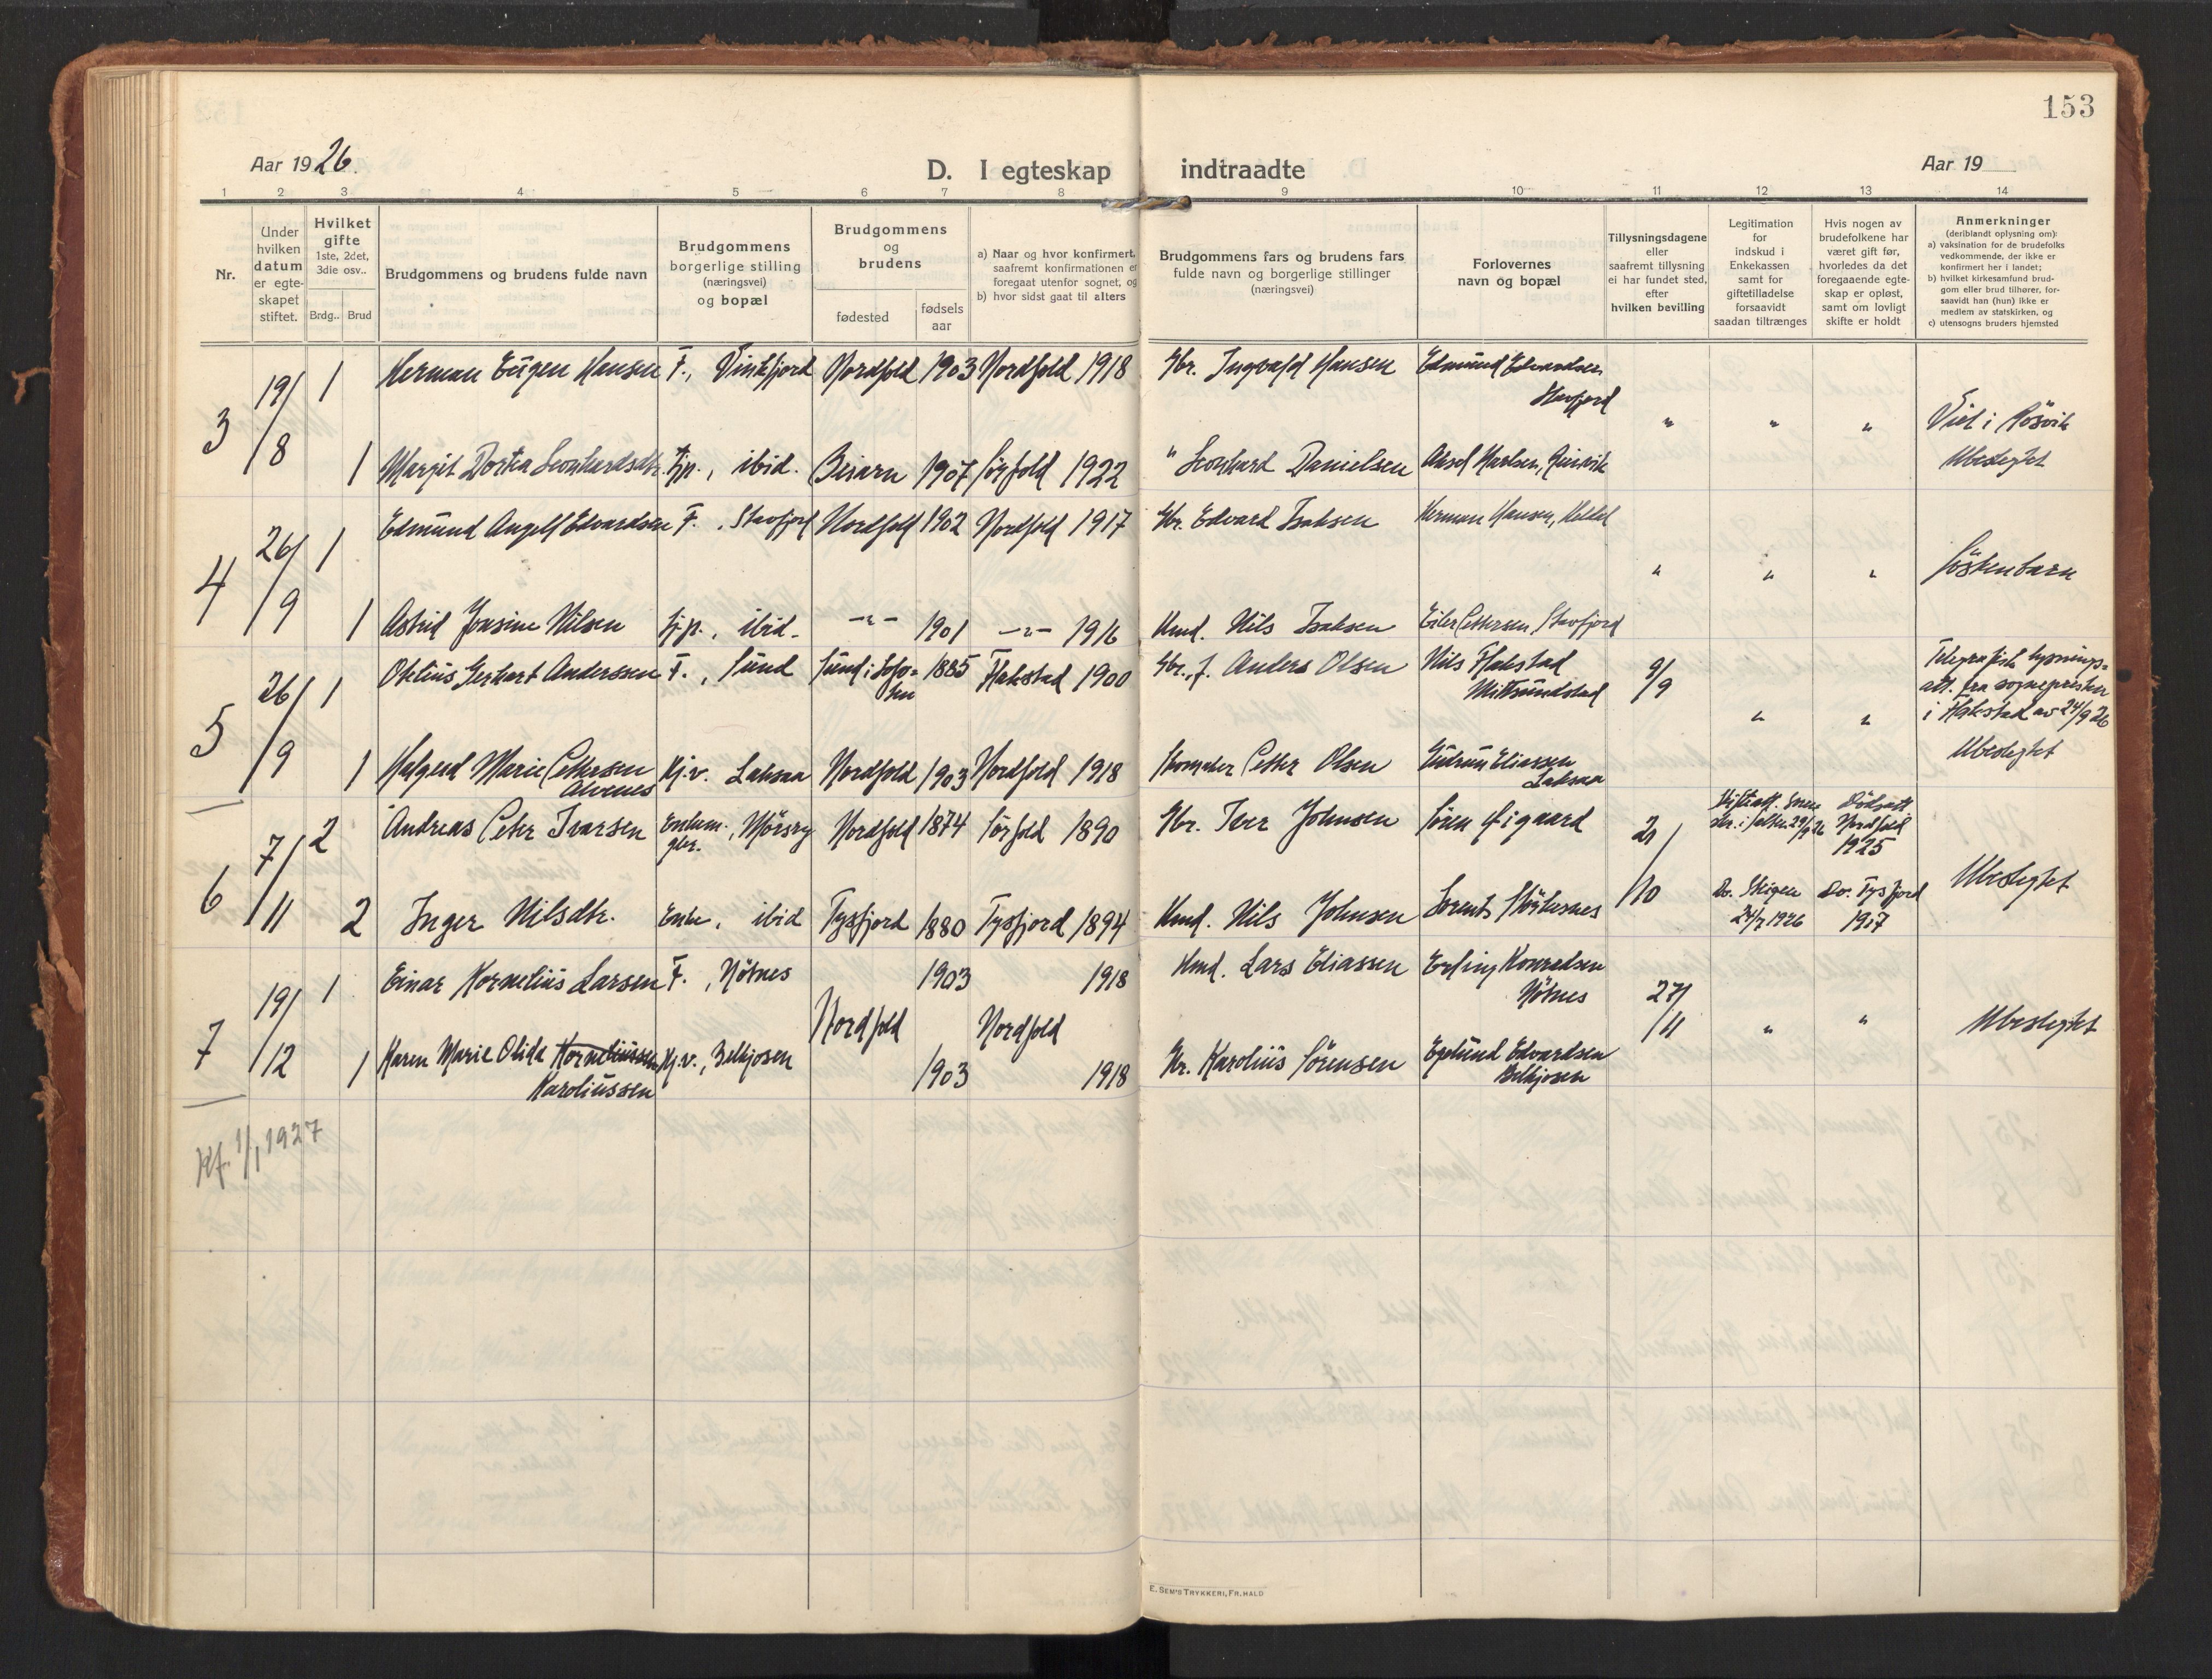 153
Aar 1926.
D. I egteskap indtraadte
Aar 19
1 2 3 4 5 6 7 8 9 10 11 12 13 14
Nr.
Under hvilken datum er egteskapet stiftet.
Hvilket gifte 1ste, 2det, 3die osv..
Brdg.. Brud
Brudgommens og brudens fulde navn
Brudgommens borgerlige stilling (næringsvei) og bopæl
Brudgommens og brudens
fødested
fødsels aar
a) Naar og hvor konfirmert, saafremt konfirmationen er foregaat utenfor sognet, og
b) hvor sidst gaat til alters
Brudgommens fars og brudens fars fulde navn og borgerlige stillinger (næringsvei)
Forlovernes navn og bopæl
Tillysningsdagene eller saafremt tillysning ei har fundet sted, efter hvilken bevilling
Legitimation for indskud i Enkekassen samt for giftetilladelse forsaavidt saadan tiltrænges
Hvis nogen av brudefolkene har været gift før, hvorledes da det foregaaende egteskap er opløst, samt om lovligt skifte er holdt
Anmerkninger (deriblandt oplysning om):
a) vaksination for de brudefolks vedkommende, der ikke er konfirmert her i landet;
b) hvilket kirkesamfund brudgom eller brud tilhører, forsaavidt han (hun) ikke er medlem av statskirken, og
c) utensogns bruders hjemsted
3 19/8 1 Herman Eugen Hansen F., Vinkfjord Nordfold 1903 Nordfold 1918 Gbr. Ingvald Hansen Edmund Edvardsen Stavfjord " " " Viet i Røsvik
1 Margit Dortea Leonhardsdtr. Tjp., ibid. Beiarn 1907 Sørfold 1922 " Leonhard Danielsen Aksel Karlsen, Ubeslegtet
4 26/9 1 Edmund Angell Edvardsen F., Stavfjord Nordfold 1902 Nordfold 1917 Gbr. Edvard Isaksen Herman Hansen, " " " Søskenbarn
1 Astrid Jonsine Nilsen Tjp., ibid. -"- 1901 -"- 1916 Kmd. Nils Isaksen Eiler Pettersen, Stavfjord
5 26/9 1 Otelius Gerhart Anderssen F., Sund Sund i Lofoten 1885 Flakstad 1900 Gbr., f. Anders Olsen Nils Flakstad 9/9 " " Telegrafisk lysnings=
att. fra sognepresten
i Flakstad av 24/9 26
1 Halgerd Marie Pettersen Alvenes Kj.v. Laksaa Nordfold 1903 Nordfold 1918 Skomaker Peter Olsen Gudrun Eliassen Laksaa Ubeslegtet
6 7/11 2 Andreas Peter Ivarsen Enkem. gbr., Mørsry Nordfold 1874 Sørfold 1890 Gbr. Iver Johnsen Søren Øigaard 21/10 Skifteatt. 29/9 26 Dødsatt Nordfold 1925 Ubeslegtet
2 Inger Nilsdtr. Enke, ibid Tysfjord 1880 Tysfjord 1894 Kmd. Nils Johnsen Lorents Storkesnes Do. Steigen 24/7 1926 Do. Tysfjord 1917
7 19/12 1 Einar Kornelius Larsen F., Nøtnes Nordfold 1903 Nordfold 1918 Kmd. Lars Eliassen Erling Konradsen Nøtnes 27/11 " " Ubeslegtet
1 Karen Marie Olida Korneliussen Karoliussen Kj.v., Belkjosen 1903 1918 Gbr. Karolius Sørensen Egelund Edvardsen Belkjosen
Kf. 1/1 1927
E. SEM'S TRYKKERI, FR.HALD